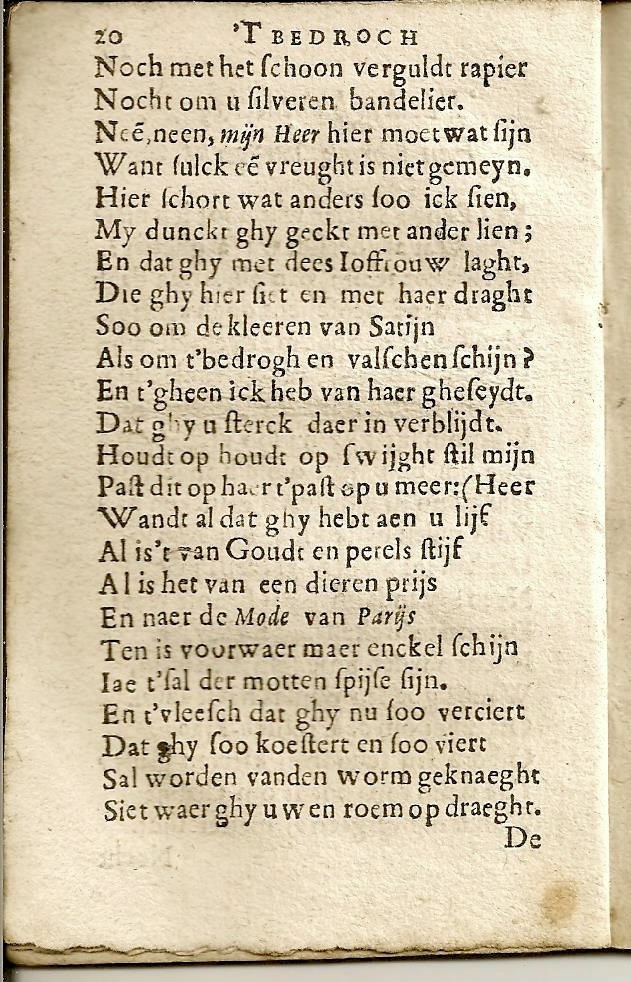 20 'T BEDROCH
Noch met het ſchoon verguldt rapier
Nocht om u ſilveren bandelier.
Neẽ, neen, mijn Heer hier moet wat ſijn
Want ſulck eẽ vreught is niet gemeyn.
Hier ſchort wat anders ſoo ick ſien,
My dunckt ghy geckt met ander lien;
En dat ghy met dees Ioffrouw laght,
Die ghy hier ſiet en met haer draght
Soo om de kleeren van Satijn
Als om t'bedrogh en valſchen ſchijn?
En t'gheen ick heb van haer gheſeydt.
Dat ghy u ſterck daer in verblijdt.
Houdt op houdt op ſwijght ſtil mijn
Paſt dit op haer t'paſt op u meer: (Heer
Wandt al dat ghy hebt aen u lijf
Al is't van Goudt en perels ſtijf
Al is het van een dieren prijs
En naer de Mode van Parijs
Ten is voorwaer maer enckel ſchijn
Iae t'ſal der motten ſpijſe ſijn.
En t'vleeſch dat ghy nu ſoo verciert
Dat ghy ſoo koeſtert en ſoo viert
Sal worden vanden worm geknaeght
Siet waer ghy uwen roem op draeght.
De